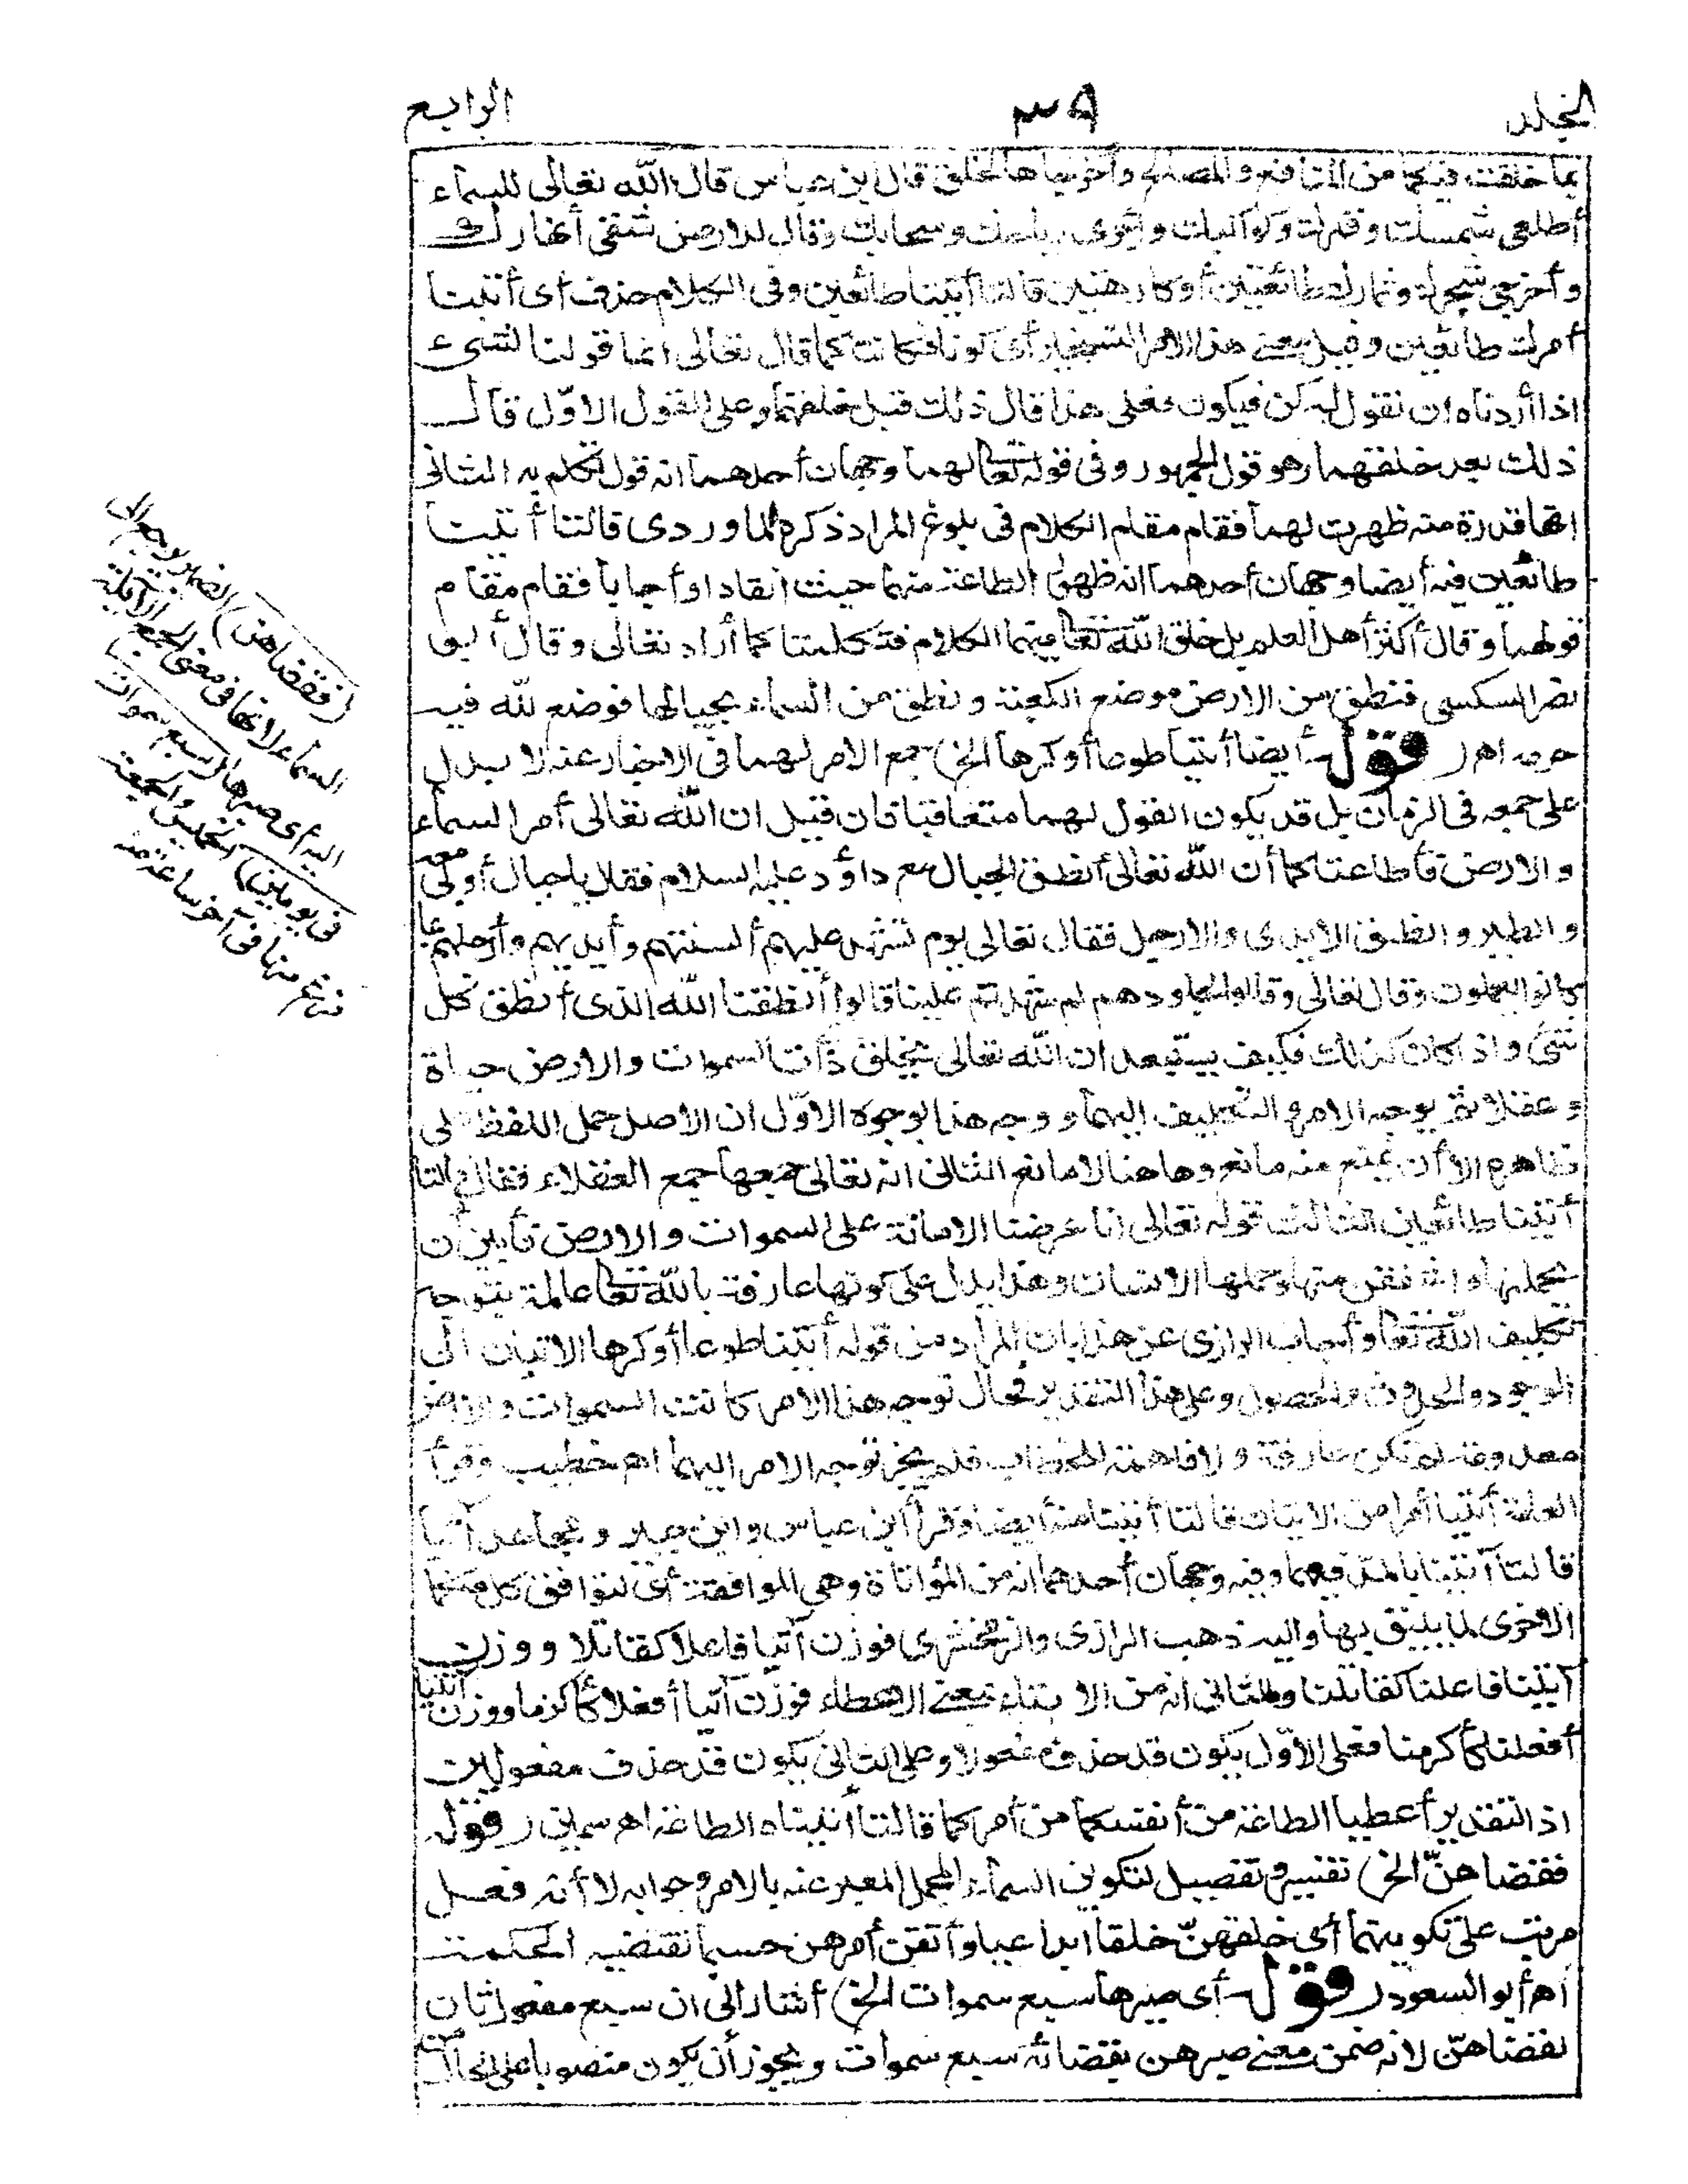 المجلد
٣٩
الرابع
بما خلقت فيكما من المنافع والمصالح وأخرجاها لخلقى قال ابن عباس قال الله تعالى للسماء
أطلعى شمسك وقمرك وكواكبك وأجرى رياحك وسحابك وقال للارض شقى أنهارك
وأخرجى شجرك وثمارك طائعتين أو كارهتين قالتا أتينا طائعين وفى الكلام حذف أى أتينا
أمرك طائعين وقيل معنى هذا الامر التسخير أى كونا فكانتا كما قال تعالى انما قولنا لشىء
اذا أردناه ان نقول له كن فيكون فعلى هذا قال ذلك قبل خلقهما وعلى القول الاوّل قال
ذلك بعد خلقهما وهو قول الجمهور وفى قوله تعالى لهما وجهان أحدهما انه قول تكلم به الثانى
انها قدرة منه ظهرت لهما فقام مقام الكلام فى بلوغ المراد ذكره الماوردى قالتا أتينا
طائعين فيه أيضا وجهان أحدهما انه ظهور الطاعة منهما حيث انقادا وأجابا فقام مقام
قولهما وقال أكثر أهل العلم بل خلق الله تعالى فيهما الكلام فتكلمتا كما أراد تعالى وقال أبو
نصر السكسى فنطق من الارض موضع الكعبة ونطق من السماء بحيالها فوضع الله فيه
حرمه اهـ ( قوله أيضا أتتيا طوعا أو كرها الخ) جمع الامر لهما فى الاخبار عنه لا يدل
على جمعه فى الزمان بل قد يكون القول لهما متعاقبا فان قيل ان الله تعالى أمر السماء
والارض فأطاعتا كما أن الله تعالى أنطق الجبال مع داؤد عليه السلام فقال يا جبال أوبى معه
والطير وأنطق الايدى والارجل فقال تعالى يوم تشهد عليهم ألسنتهم وأيديهم وأرجلهم بما
كانوا يعملون وقال تعالى وقالوا لجلودهم لم شهدتم علينا قالوا أنطقنا الله الذى أنطق كل
شىء واذا كان كذلك فكيف يستبعد ان الله تعالى يخلق فى ذات السموات والارض حياة
وعقلا ثم يوجه الامر والتكليف اليهما ووجه هذا بوجوه الاوّل ان الاصل حمل اللفظ على
ظاهره الا أن يمنع منه مانع وهاهنا لا مانع الثانى انه تعالى جمعها جمع العقلاء فقال قالتا
أتينا طائعين الثالث قوله تعالى انا عرضنا الامانة على السموات والارض فأبين أن
يحملنها وأشفقن منها وحملها الانسان وهذا يدل على كونها عارفة بالله تعالى عالمة بتوجه
تكليف الله تعالى وأجاب الرازى عن هذا بان المراد من قوله أتتيا طوعا أو كرها الاتيان الى
الوجود والحدوث والحصول وعلى هذا التقدير فحال توجه هذا الامر كانت السموات والارض
معدومة لم تكن عارفة ولا فاهمة للخطاب فلم يجز توجه الامر اليهما اهـ خطيب وقرأ
العامة أتتيا أمرا من الاتيان قالتا أتينا منه أيضا وقرأ ابن عباس وابن جبير ومجاهد آتيا
قالتا آتينا بالمد فيهما وفيه وجهان أحدهما انه من المؤاتاة وهى الموافقة أى لتوافق كل منكما
الاخرى لما يليق بها واليه ذهب الرازى والزمخشرى فوزن آتيا فاعلا كقاتلا ووزن
آتينا فاعلنا كقاتلنا والثانى انه من الايتاء بمعنى الاعطاء فوزن آتيا أفعلا كأكرما ووزن آتينا
أفعلنا كأكرمنا فعلى الاوّل يكون قد حذف مفعولا وعلى الثانى يكون قد حذف مفعولين
اذ التقدير أعطيا الطاعة من أنفسكما من أمركما قالتا آتيناه الطاعة اهـ سمين ( قوله
فقضاهنّ الخ) تفسير وتفصيل لتكوين السماء المجمل المعبر عنه بالامر وجوابه لا أنه فعل
مرتب على تكوينهما أى خلقهنّ خلقا ابداعيا وأتقن أمرهن حسبما تقتضيه الحكمة
اهـ أبو السعود ( قوله أى صيرها سبع سموات الخ) أشار الى ان سبع مفعول ثان
لقضاهنّ لانه ضمن معنى صيرهن بقضائه سبع سموات ويجوز أن يكون منصوبا على الحال
(فقضاهن) الضمير يرجع الى
السماء لانها فى معنى الجمع الآيلة
اليه أى صيرها (سبع سموات
فى يومين) الخميس والجمعة
فرغ منها فى آخر ساعة منه